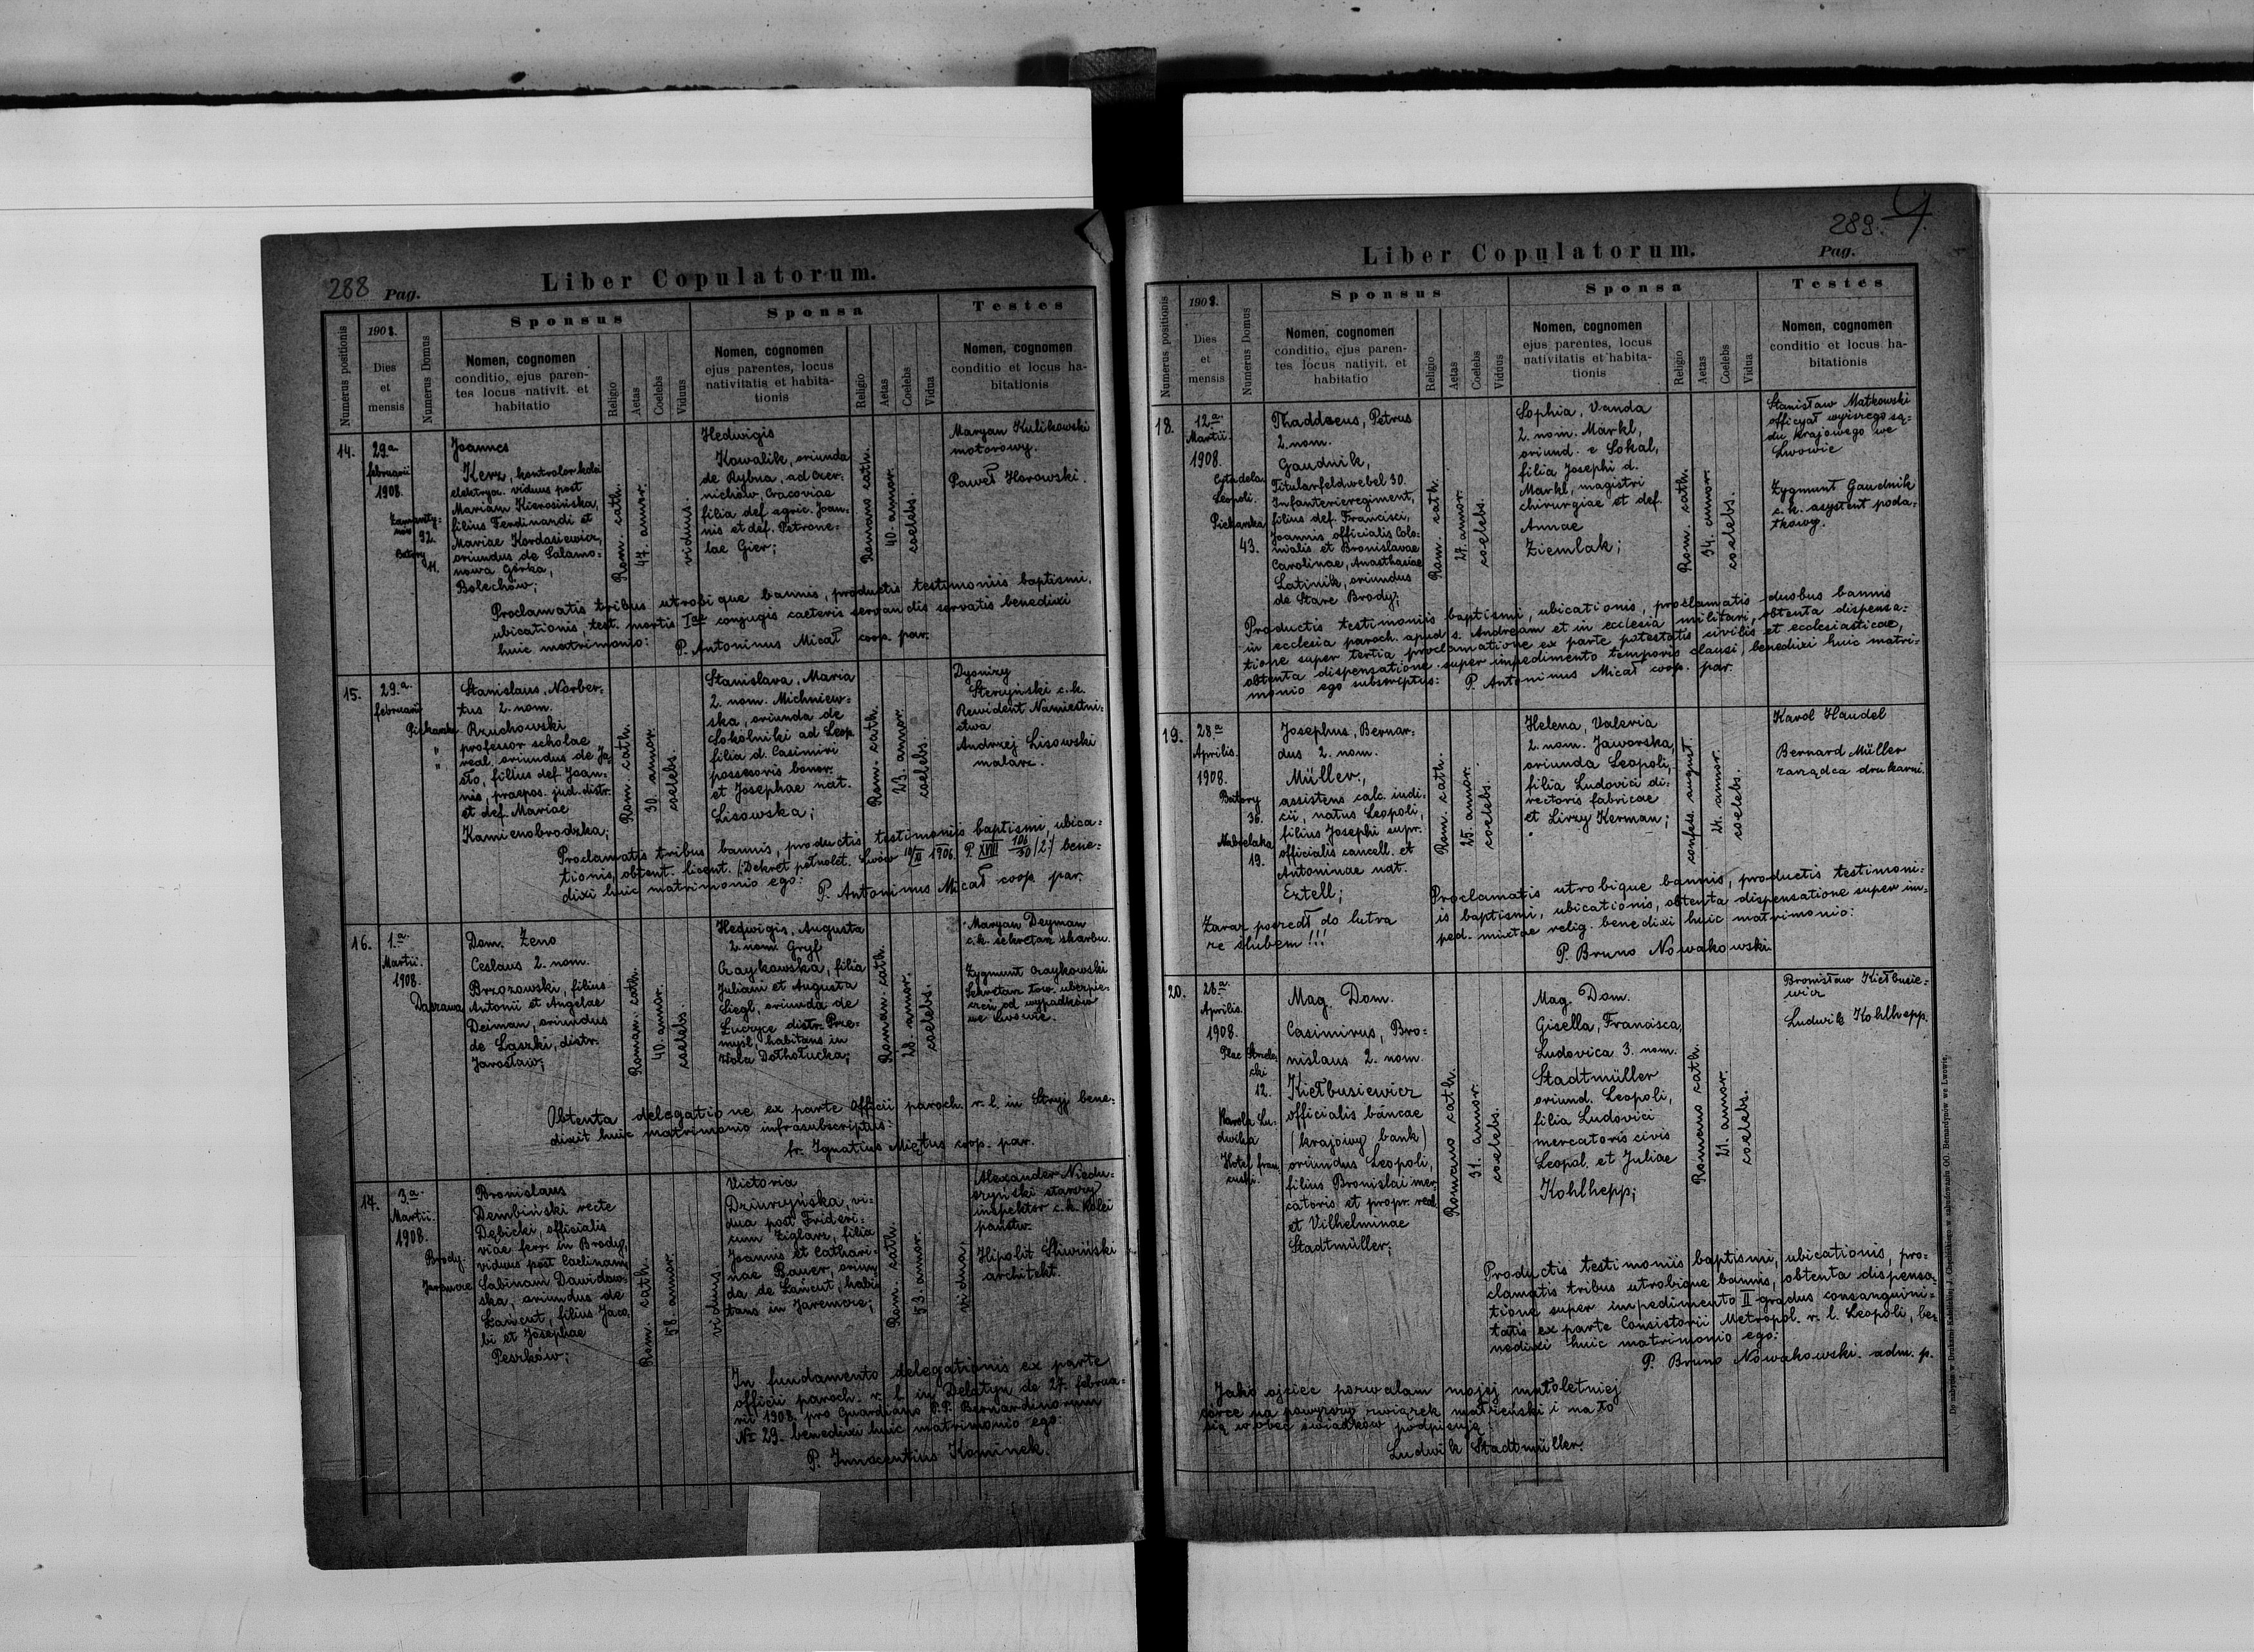 288 Pag.
Liber Copulatorum.
Numerus positionis
1908.
Dies
et
mensis
Numerus Domus
Sponsus
Nomen, cognomen
conditio, ejus paren-
tes locus nativit. et
habitatio
Religio
Aetas
Coelebs
Viduus
Sponsa
Nomen, cognomen
ejus parentes, locus
nativitatis et habita-
tionis
Religio
Aetas
Coelebs
Vidua
Testes
Nomen, cognomen
conditio et locus ha-
bitationis
14.
29.a
februarii
1908.
92.
Batory
11.
Joannes
Kerz, kontrolor kolei
elektrycz. viduus post
Mariam Kierosińska,
filius Ferdinandi et
Mariae Kordasiewicz,
oriundus de Salamo-
nowa Górka,
Bolechów;
Rom. cath.
47. annor.
viduus.
Hedwigis
Kowalik, oriunda
de Rybna, ad Czer-
nichów, Cracoviae
filia def. agric. Joan-
nis et def. Petrone-
lae Gier;
Romano cath.
40. annor.
coelebs.
Maryan Kulikowski
motorowy.
Paweł Horowski.
Proclamatis tribus utrobique bannis, productis testimoniis baptismi,
ubicationis, test. mortis Iae conjugis caeteris servandis servatis benedixi
huic matrimonio: P. Antoninus Micał coop. par.
15.
29.a
februarii
Piekarska
"
"
Stanislaus, Norber-
tus 2. nom.
Rzuchowski
professor scholae
real. oriundus de Ja-
sło, filius def. Joan-
nis, praepos. jud. distr.
et def. Mariae
Kamienobrodzka;
Rom. cath.
30. annor.
coelebs.
Stanislava, Maria
2. nom. Michniew-
ska, oriunda de
Sokolniki ad Leop.
filia d. Casimiri
possesoris bonor.
et Josephae nat.
Lisowska;
Rom. cath.
23. annor.
coelebs.
Dyonizy
Sterzyński c.k.
Rewident Namiestni-
ctwa
Andrzej Lisowski
malarz.
Proclamatis tribus bannis, productis testimoniis baptismi, ubica-
tionis, obtent. licent. (Dekret pełnolet. Lwów 10/II 1906. P. XVIII 106/30/2) bene-
dixi huic matrimonio ego: P. Antoninus Micał coop. par.
16.
1.a
Martii.
1908.
Daszawa
Dom. Zeno
Ceslaus 2. nom.
Brzozowski, filius
Antonii et Angelae
Deiman, oriundus
de Laszki, distr.
Jarosław;
Roman. cath.
40. annor.
coelebs.
Hedwigis, Augusta
2. nom. Gryf
Czaykowska, filia
Juliani et Augusta
Siegl, oriunda de
Łuczyce distr. Prze-
myśl, habitans in
Wola Dołhołucka;
Roman. cath.
28. annor.
coelebs.
Maryan Deyman
c.k. sekretarz skarbu.
Zygmunt Czaykowski
Sekretarz tow. ubezpie-
czeń od wypadków
we Lwowie.
Obtenta delegatione ex parte Officii paroch. r. l. in Stryj bene-
dixit huic matrimonio infrasubscriptus:
fr. Ignatius Miętus coop. par.
17.
3.a
Martii.
1908.
Brody.
Jaremcze
Bronislaus
Dembiński recte
Dębicki, officialis
viae ferr. in Brody,
viduus post Caelinam
Sabinam Dawidow-
ska, oriundus de
Łańcut, filius Jaco-
bi et Josephae
Peszków;
Rom. cath.
58. annor.
viduus.
Victoria
Dziurzyńska, vi-
dua post Frideri-
cum Ziglarz, filia
Joannis et Cathari-
nae Bauer, oriun-
da de Łańcut, habi-
tans in Jaremcze;
Rom. cath.
53. annor.
vidua.
Alexander Niedu-
szyński starszy
inspektor c.k. kolei
państw.
Hipolit Śliwiński
architekt.
In fundamento delegationis ex parte
officii paroch. r. l. in Delatyn de 27. februa-
rii 1908. pro Guardiano P.P. Bernardinorum
№ 29. benedixi huic matrimonio ego:
P. Innocentius Kominek.
289.
Pag.
Liber Copulatorum.
Numerus positionis
1908.
Dies
et
mensis
Numerus Domus
Sponsus
Nomen, cognomen
conditio, ejus paren-
tes locus nativit. et
habitatio
Religio
Aetas
Coelebs
Viduus
Sponsa
Nomen, cognomen
ejus parentes, locus
nativitatis et habita-
tionis
Religio
Aetas
Coelebs
Vidua
Testes
Nomen, cognomen
conditio et locus ha-
bitationis
18.
12.a
Martii.
1908.
Cytadela
Leopoli.
Piekarska
43.
Thaddaeus, Petrus
2. nom.
Gaudnik,
Titularfeldwebel 30.
Infanterieregiment,
filius def. Francisci,
Joannis officialis Colo-
nialis et Bronislavae
Carolinae, Anasthasiae
Latinik, oriundus
de Stare Brody;
Rom. cath.
27. annor.
coelebs.
Sophia, Vanda
2. nom. Markl,
oriund. e Sokal,
filia Josephi d.
Markl, magistri
chirurgiae et def.
Annae
Ziemlak;
Rom. cath.
34. annor.
coelebs.
Stanisław Matkowski
officyał wyższego są-
du krajowego we
Lwowie
Zygmunt Gaudnik
c.k. asystent poda-
tkowy.
Productis testimoniis baptismi, ubicationis, proclamatis duobus bannis
in ecclesia paroch. apud s. Andream et in ecclesia militari, obtenta dispensa-
tione super tertia proclamatione ex parte potestatis civilis et ecclesiasticae,
obtenta dispensatione super impedimento temporis clausi, benedixi huic matri-
monio ego subscriptus: P. Antoninus Micał coop. par.
19.
28.a
Aprilis.
1908.
Batory
36.
Nabielaka
19.
Josephus, Bernar-
dus 2. nom.
Müller,
assistens calc. iudi-
cii, natus Leopoli,
filius Josephi supr.
officialis cancell. et
Antoninae nat.
Eztell;
Rom. cath.
25. annor.
coelebs.
Helena, Valeria
2. nom. Jaworska,
oriunda Leopoli,
filia Ludovici di-
rectoris fabricae
et Livzy Kerman;
confess. august.
24. annor.
coelebs.
Karol Haudel
Bernard Müller
zarządca drukarni.
Proclamatis utrobique bannis, productis testimoni-
is baptismi, ubicationis, obtenta dispensatione super im-
ped. mixtae relig. benedixi huic matrimonio:
P. Bruno Nowakowski.
Zaraz poszedł do lutra
ze ślubem!!!
20.
28.a
Aprilis.
1908.
Plac Strzele-
cki
12.
Karola Lu-
dwika
Hotel fran-
cuski.
Mag. Dom.
Casimirus, Bro-
nislaus 2. nom.
Kiełbusiewicz
officialis bancae
(krajowy bank)
oriundus Leopoli,
filius Bronislai mer-
catoris et propr. real.
et Vilhelminae
Stadtmüller;
Romano cath.
31. annor.
coelebs.
Mag. Dom.
Gisella, Francisca,
Ludovica 3. nom.
Stadtmüller
oriund. Leopoli,
filia Ludovici
mercatoris civis
Leopol. et Juliae
Kohlhepp;
Romano cath.
21. annor.
coelebs.
Bronisław Kiełbusie-
wicz
Ludwik Kohlhepp.
Productis testimoniis baptismi, ubicationis, pro-
clamatis tribus utrobique bannis, obtenta dispensa-
tione super impedimento II gradus consanguini-
tatis ex parte Consistorii Metropol. r. l. Leopoli, be-
nedixi huic matrimonio ego:
P. Bruno Nowakowski. adm. p.
Jako ojciec pozwalam mojej małoletniej
córce na powyższy związek małżeński i na to
się wobec świadków podpisuję
Ludwik Stadtmüller.